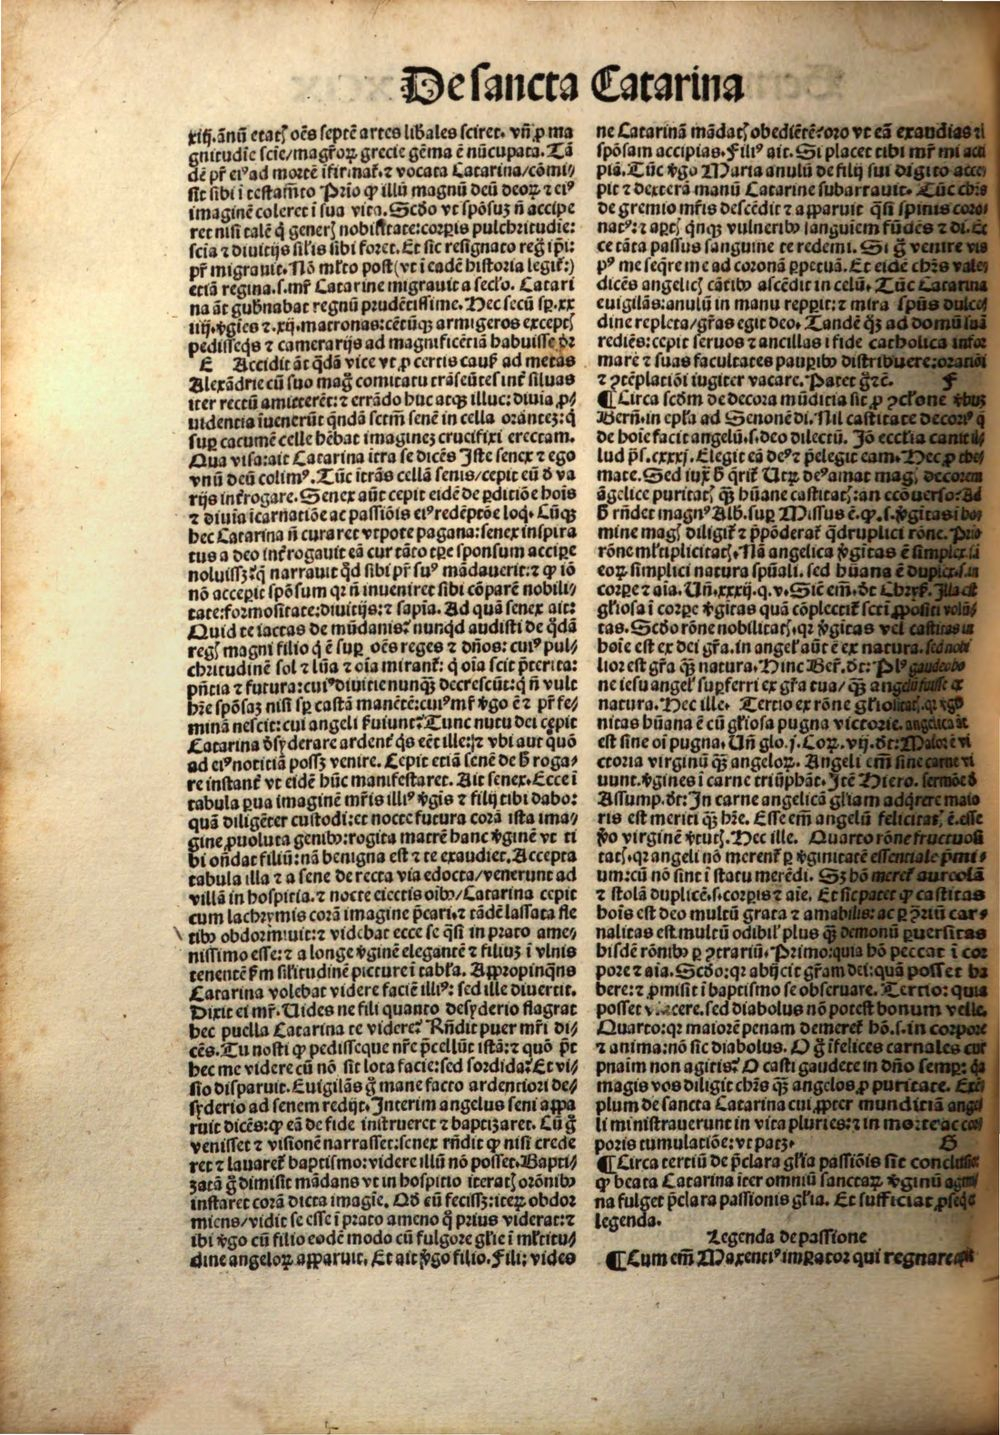 De sancta Catarina
xiij. ānū etatꝭ oēs septē artes lib̄ales sciret. vn̄ ꝓ ma
gnitudīe scīe/magr̄oꝝ grecie gēma ē nūcupata. Tā
dē pr̄ eiꝰ ad mortē ifirnat᷑. ⁊ vocata Catarina/cōmi-
sit sibi ī testam̄to Prīo ꝙ illū magnū deū deoꝝ ⁊ eiꝰ
imaginē coleret ī sua vita. Scd̄o vt spōsuȝ n̄ accipe
ret nisi talē q̄ generꝭ nobilitate: corpīs pulchritudīe:
scīa ⁊ diuitijs sil̄is sibi foret. Et sic resignato reg̃ ip̄i:
pr̄ migrauit. Nō ml̄to post (vt ī eadē historia legit᷑:)
etiā regina .s. mr̄ Catarine migrauit a secl̄o. Catari
na āt gub̄nabat regnū prudētissime. Hec secū sꝑ. xx
iiij. v̄gīes ⁊ .xij. matronas: cētūqȝ armigeros exceptꝭ
pedisseq̄s ⁊ camerarijs ad magnificētiā habuisse d̄r
E Accidit āt q̄dā vice vt ꝓ certis causꝭ ad metas
Alexādrie cū suo mag̃ comitatu trāseūtes int᷑ siluas
iter rectū amitterēt: ⁊ errādo huc atqȝ illuc: diuīa ꝓ-
uidentia īuenerūt quēdā sctm̄ senē in cella orātēȝ: q̄
suꝑ cacumē celle hēbat imagineȝ crucifixi erectam.
Qua visa: ait Catarina itra se dicēs Iste senex ⁊ ego
vnū deū colimꝰ. Tūc itrās cellā senis/cepit eū d̄ va
rijs int᷑rogare. Senex aūt cepit eidē de ꝑditiōe hoīs
⁊ diuīa īcarnatiōe ac passiōis eiꝰ redēptōe loq̄. Cūqȝ
hec Catarina n̄ curaret vtpote pagana: senex inspira
tus a deo int᷑rogauit eā cur tāto tꝑe sponsum acciꝑe
noluissȝ: q̄ narrauit qd̄ sibi pr̄ suꝰ mādauerit: ⁊ ꝙ iō
nō acceꝑit spōsum qꝛ n̄ inueniret sibi cōparē nobili-
tate: formositate: diuitijs: ⁊ sapīa. Ad quā senex ait:
Quid te iactas de mūdanis? nunqd̄ audisti de q̄dā
regꝭ magni filio q̄ ē suꝑ oēs reges ⁊ dn̄os: cuiꝰ pul-
chritudinē sol ⁊ lūa ⁊ oīa mirant᷑: q̄ oīa scit p̄terita:
pn̄tia ⁊ futura: cuiꝰ diuitie nunqȝ decrescūt: q̄ n̄ vult
hr̄e spōsaȝ nisi sꝑ castā manētē: cuiꝰ mr̄ v̄go ē ⁊ pr̄ fe-
minā nescit: cui angeli ẜuiunt? Tunc nutu dei cepit
Catarina d̄syderare ardent᷑ q̄s eēt ille: ⁊ vbi aut quō
ad eiꝰ noticiā possȝ venire. Cepit etiā senē de h̄ roga-
re instant᷑ vt eidē hūc manifestaret. Ait senex. Ecce ī
tabula ꝑua imaginē mr̄is illiꝰ v̄gīs ⁊ filij tibi dabo:
quā diligēter custodi: et nocte futura corā ista ima-
gine ꝓuoluta genibꝰ: rogita matrē hanc v̄ginē vt ti
bi on̄dat filiū: nā benigna est ⁊ te exaudiet. Accepta
tabula illa ⁊ a sene de recta via edocta/venerunt ad
villā in hospitia. ⁊ nocte eiectis oībꝰ/Catarina cepit
cum lachrymis corā imagine p̄cari. ⁊ tādē lassata fle
tibꝰ obdormiuit: ⁊ videbat ecce se q̄si in prato ame-
nissimo esse: ⁊ a longe v̄ginē elegantē ⁊ filiuȝ ī vlnis
tenentē ẜm sil̄itudinē picture ī tabl̄a. Aꝓpropinq̄ns
Catarina volebat videre faciē illiꝰ: sed ille diuertit.
Dixit ei mr̄. Uides ne fili quanto desyderio flagrat
hec puella Catarina te videre? Rn̄dit puer mr̄i di-
cēs. Tu nosti ꝙ pedisseque nr̄e p̄cellūt istā: ⁊ quō p̄t
hec me videre cū nō sit lota facie: sed sordida? Et vi-
sio disparuit. Euigilās g̃ mane facto ardentiori de-
syderio ad senem redijt. Interim angelus seni aꝑpa
ruit dicēs: ꝙ eā de fide instrueret ⁊ baptizaret. Cū g̃
venisset ⁊ visionē narrasset: senex rn̄dit ꝙ nisi crede
ret ⁊ lauaret᷑ baptismo: videre illū nō posset. Bapti-
zatā g̃ dimisit mādans vt in hospitio iteratꝭ orōnibꝰ
instaret corā dicta imagīe. Qd̄ cū fecissȝ: iteꝝ obdor
miens/vidit se esse ī prato ameno q̄ prius viderat: ⁊
ibi v̄go cū filio eodē modo cū fulgore gl̄ie ī ml̄titu-
dine angeloꝝ aꝑparuit. Et ait v̄go filio. Fili: vides
ne Catarinā mādatꝭ obediētē: oro vt eā exaudias ⁊ ī
spōsam accipias. Filiꝰ ait. Si placet tibi mr̄ mi acci
piā. Tūc v̄go Maria anulū de filij sui digito acce-
pit ⁊ dexterā manū Catarine subarrauit. Tūc chr̄s
de gremio mr̄is descēdit ⁊ aꝑparuit q̄si spinis coro
natꝰ: ⁊ aꝑtꝭ qnqȝ vulneribꝰ sanguiem fūdēs ⁊ di. Ec
ce tāta passus sanguine te redemi. Si g̃ venire vis
pꝰ me seq̄re me ad coronā ꝑpetuā. Et eidē chr̄s vale
dicēs angelicꝭ cātibꝰ ascēdit in celū. Tūc Catarina
euigilās: anulū in manu reꝑperit: ⁊ mira spūs dulce
dine repleta/gr̄as egit deo. Tandē qȝ ad domū suā
rediēs: cepit seruos ⁊ ancillas ī fide catholica infor
mare ⁊ suas facultates pauꝑibꝰ distribuere: oratiōi
⁊ ꝯtēplatiōi iugiter vacare. Patet g̃ ⁊c̄. F
¶ Circa scdm̄ de decora mūditia sit ꝓ ꝯcl̄one v̄buȝ
Bern̄. in epl̄a ad Senonē di. Nil castitate decoriꝰ q̄
de hoīe facit angelū .s. deo dilectū. Iō eccl̄ia canit il-
lud ps̄. cxxxj. Elegit eā deꝰ ⁊ p̄elegit eam. Hec ꝓ the-
mate. Sed iux̄ h̄ q̄rit᷑ Utꝝ deꝰ amat magꝭ decorem
āgelice puritatꝭ qȝ hūane castitatꝭ: an ecōuerso? Ad
h̄ rn̄det magnꝰ Alb̄. suꝑ Missus ē. ꝙ .s. v̄gitas ī ho-
mine magꝭ diligit᷑ ⁊ p̄pōderat᷑ q̄druplici rōne. Prīo
rōne ml̄tiplicitatꝭ. Nā angelica v̄gitas ē simplex ī
eoꝝ simplici natura spūali. sed hūana ē duplex .s. in
corꝑe ⁊ aīa. Un̄. xxxij. q. v. Sic em̄. dt̄ Chrys̄. Illa ē
gl̄iosa ī corꝑe v̄gitas quā cōplectit᷑ sctī ꝓpositi volū-
tas. Scd̄o rōne nobilitatꝭ. qꝛ v̄gitas vel castitas in
hoīe est ex dei gr̄a. in angel̄ aūt ē ex natura. sed nobi
lior est gr̄a qȝ natura. Hinc Ber̄. dt̄: Plꝰ gaudeo bo
ne iesu angel̄ suꝑferri ex gr̄a tua/qȝ angelū fuisse ex
natura. Hec ille. Tertio ex rōne gl̄iolitatꝭ. qꝛ v̄gi
nitas hūana ē cū gl̄iosa pugna victorie. angelica āt
est sine oī pugna. Un̄ glo. j. Coꝝ. vij. dt̄: Maior ē vi
ctoria virginū qȝ angeloꝝ. Angeli em̄ sine carne vi
uunt. v̄gines ī carne triūphāt. Itē Hiero. sermōe d̄
Assump. dt̄: In carne angelicā gl̄iam adq̄rere maio
ris est meriti qȝ hr̄e. Esse em̄ angelū felicitatꝭ ē. esse
v̄o virginē v̄tutꝭ. Hec ille. Quarto rōne fructuosi
tatꝭ. qꝛ angeli nō merent᷑ ꝑ v̄ginitatē essentiale p̄mi-
um: cū nō sint ī statu merēdi. Sȝ hō meret᷑ aureolā
⁊ stolā duplicē .s. corꝑis ⁊ aīe. Et sic patet ꝙ castitas
hoīs est deo multū grata ⁊ amabilis: ac ꝑ ꝯr̄iū car-
nalitas est multū odibil̄ plus qȝ demonū ꝑuersitas
hisdē rōnibꝰ ꝑ ꝯtrariū. Primo: quia hō peccat ī cor
pore ⁊ aīa. Scd̄o: qꝛ abijcit gr̄am dei: quā posset ha
bere: ⁊ ꝓmisit ī baptismo se obseruare. Tertio: quia
posset vincere. sed diabolus nō potest bonum velle.
Quarto: qꝛ maiorē penam demeret᷑ hō .s. in corpore
⁊ anima: nō sic diabolus. O g̃ īfelices carnales cur
pn̄iam non agitis? O casti gaudete in dn̄o semꝑ: qꝛ
magis vos diligit chr̄s qȝ angelos ꝓ puritate. Exē-
plum de sancta Catarina cui ꝓpter mundiciā ange
li ministrauerunt in vita pluries: ⁊ in morte ac cor
poris tumulatiōe: vt patȝ. G
¶ Circa tertiū de p̄clara gl̄ia passiōis sit conclusio:
ꝙ beata Catarina īter omniū sanctaꝝ v̄ginū agmi
na fulget p̄clara passionis gl̄ia. Et sufficiat ꝓseq̄
legenda.
Legenda de passione
¶ Cum em̄ Maxentiꝰ imꝑator qui regnare